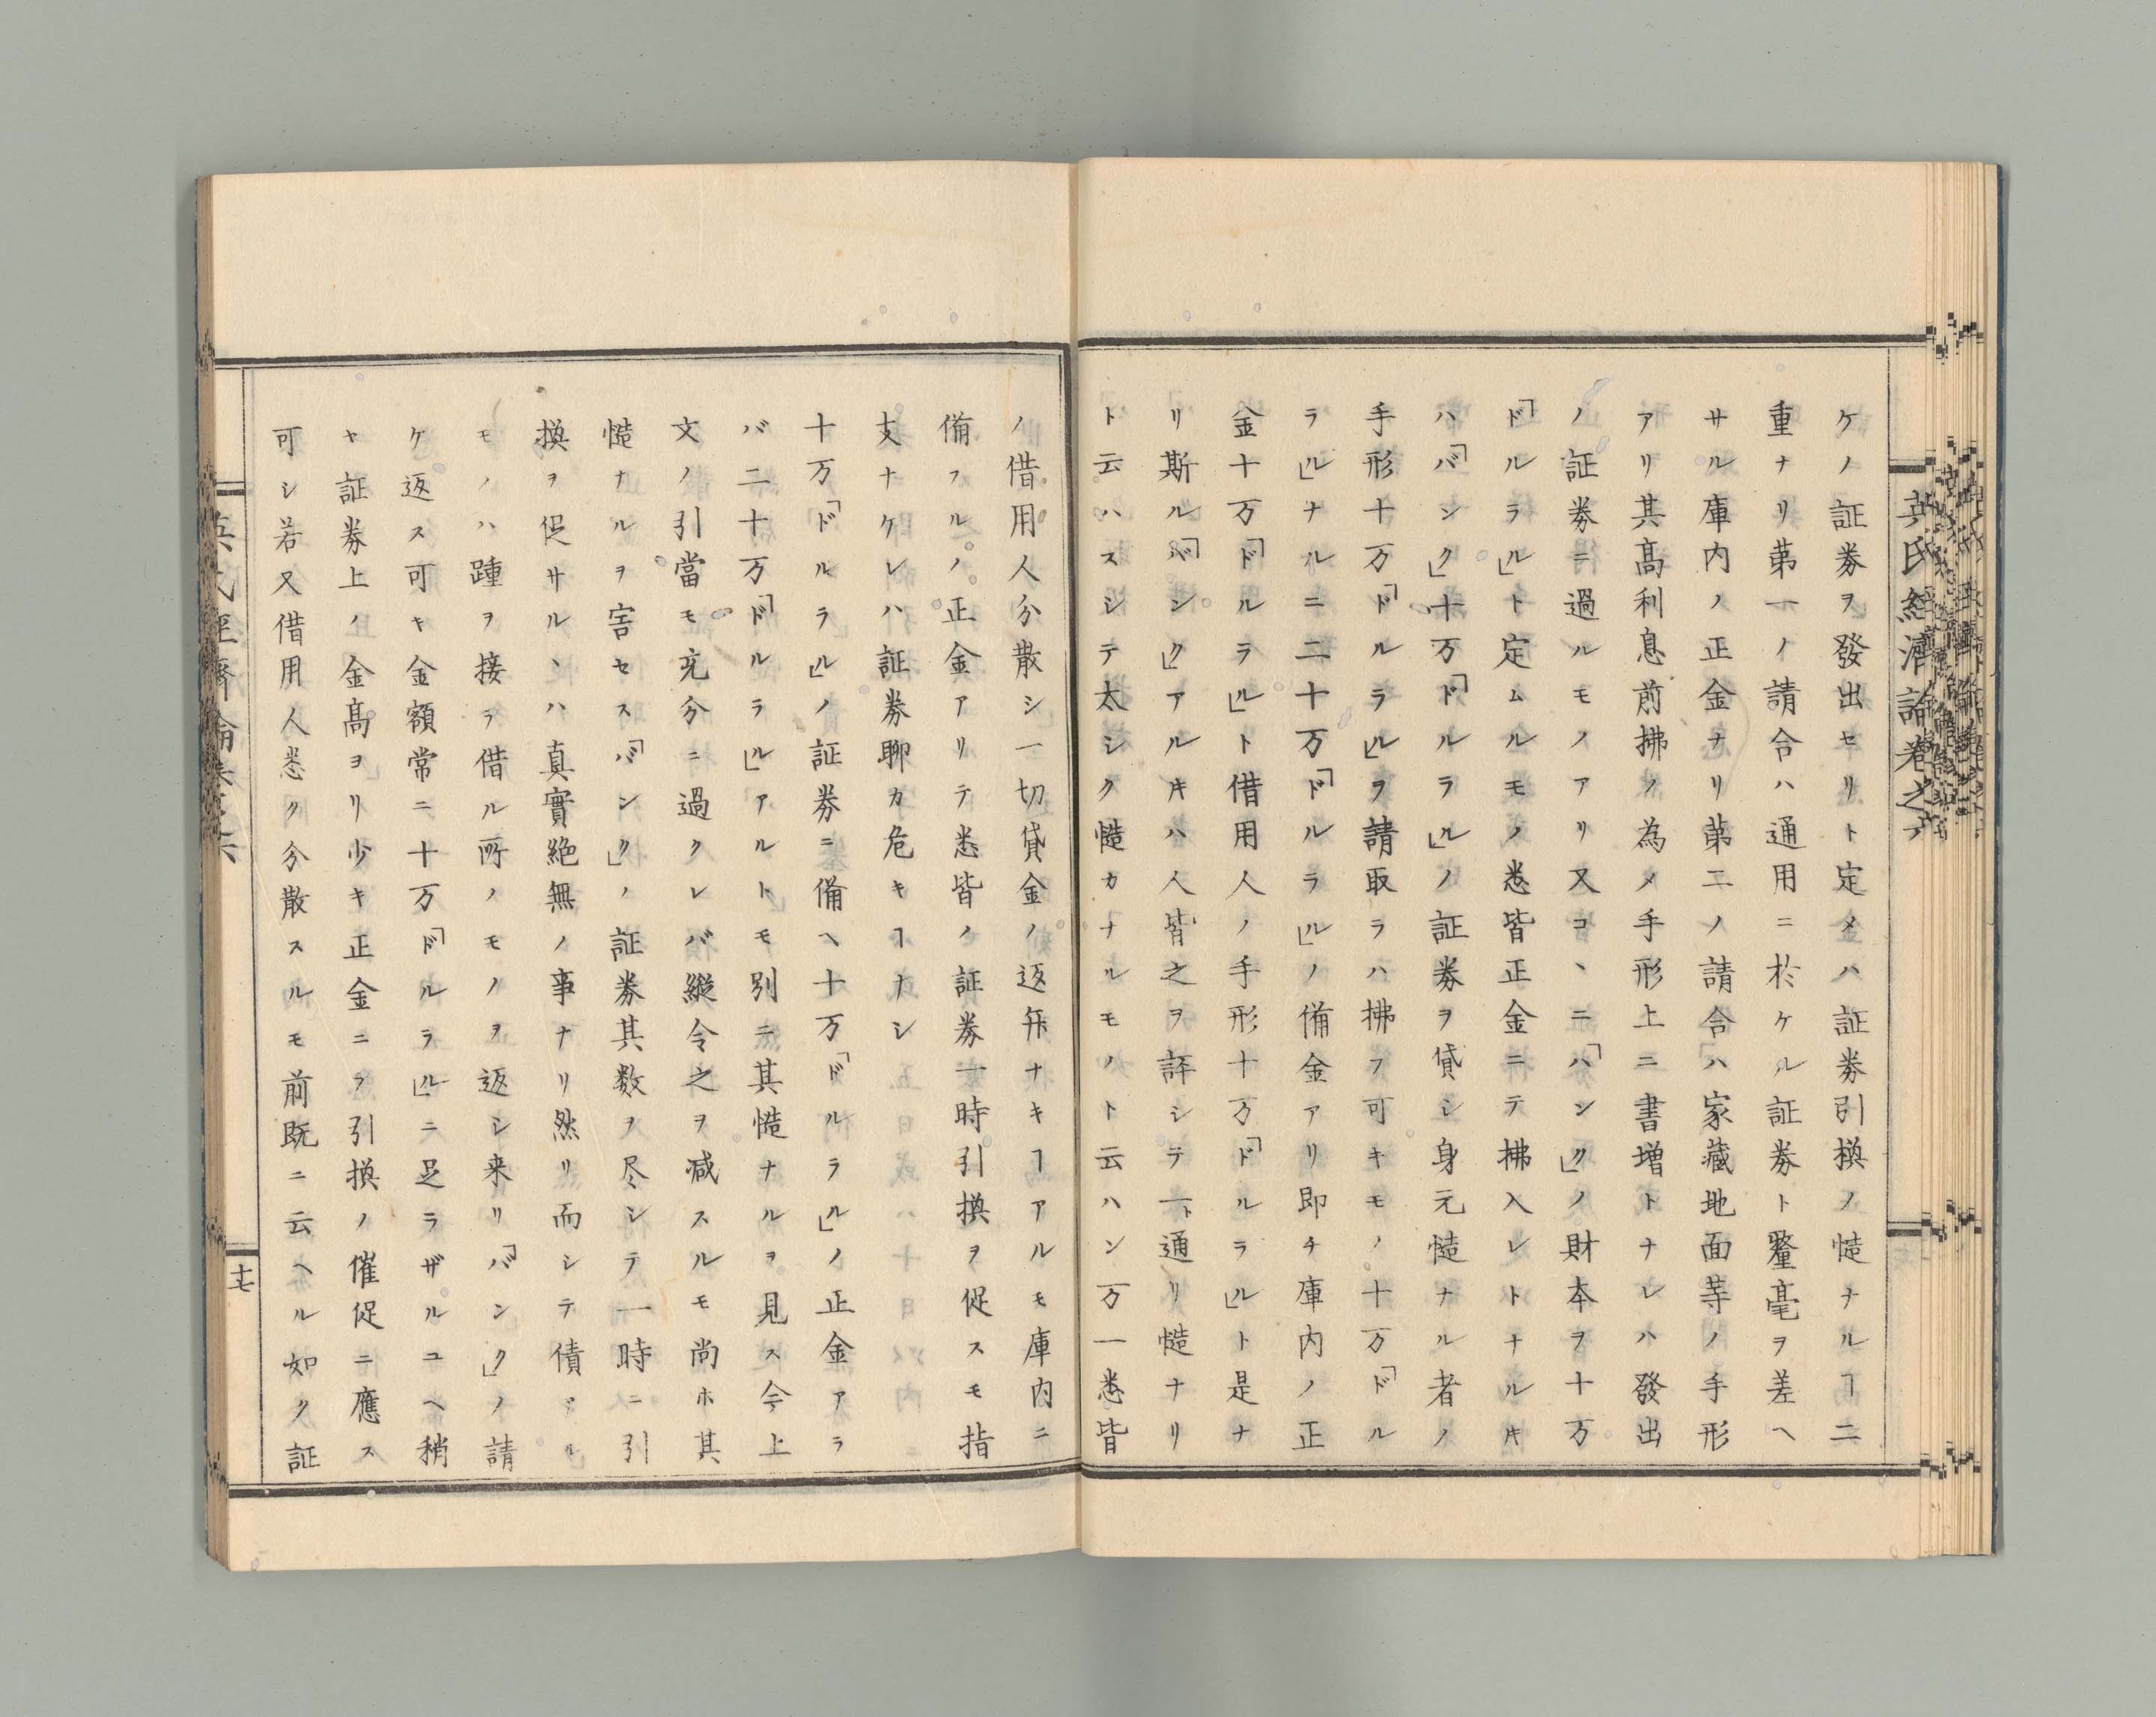 英氏経濟論卷之
ケノ証券ヲ發出セリト定メハ証券引換ノ慥ナルヿ二
重ナリ第一ノ請合ハ通用ニ於ケル証券ト釐毫ヲ差ヘ
サル庫内ノ正金ナリ第二ノ請合ハ家蔵地面等ノ手形
アリ其髙利息前拂ノ為メ手形上ニ書増トナレハ發出
ノ証券ニ過ルモノアリ又コヽニ「ハンク」ノ財本ヲ十万
「ドルラル」ト定ムルモノ悉皆正金ニテ拂入レトナルキ
ハ「バンク」十万「ドルラル」ノ証券ヲ貸シ身元慥ナル者ノ
手形十万「ドルラル」ヲ請取ラハ拂フ可キモノ十万「ドル
ラル」ナルニ二十万「ドルラル」ノ備金アリ即チ庫内ノ正
金十万「ドルラル」ト借用人ノ手形十万「ドルラル」ト是ナ
リ斯ル「バンク」アルキハ人皆之ヲ評シラ一ト通リ慥ナリ
ト云ハスシテ太シク慥カナルモノト云ハン万一悉皆
ノ借用人分散シ一切貸金ノ返弁ナキヿアルモ庫内ニ
備フルノ正金アリテ悉皆ノ証券一時引換ヲ促スモ指
支ナケレハ証券聊カ危キヿナシ
十万「ドルラル」ノ証券ニ備ヘ十万「ドルラル」ノ正金アラ
バ二十万「ドルラル」アルトモ別ニ其慥ナルヲ見ス今上
文ノ引當モ充分ニ過クレバ縦令之ヲ减スルモ尚ホ其
慥ナルヲ害セス「バンク」ノ証券其数ヲ尽シテ一時ニ引
換ヲ促サルヽハ真實絶無ノ事ナリ然リ而シテ債ドル
モノハ踵ヲ接ラ借ル所ノモノヲ返シ来リ「バンク」ノ請
ケ返ス可キ金額常ニ十万「ドルラル」ニ足ラザルユヘ稍
ヤ証券上ノ金髙ヨリ少キ正金ニヲ引換ノ催促ニ應ス
可シ若又借用人悉ク分散スルモ前既ニ云ヘル如ク証
十七